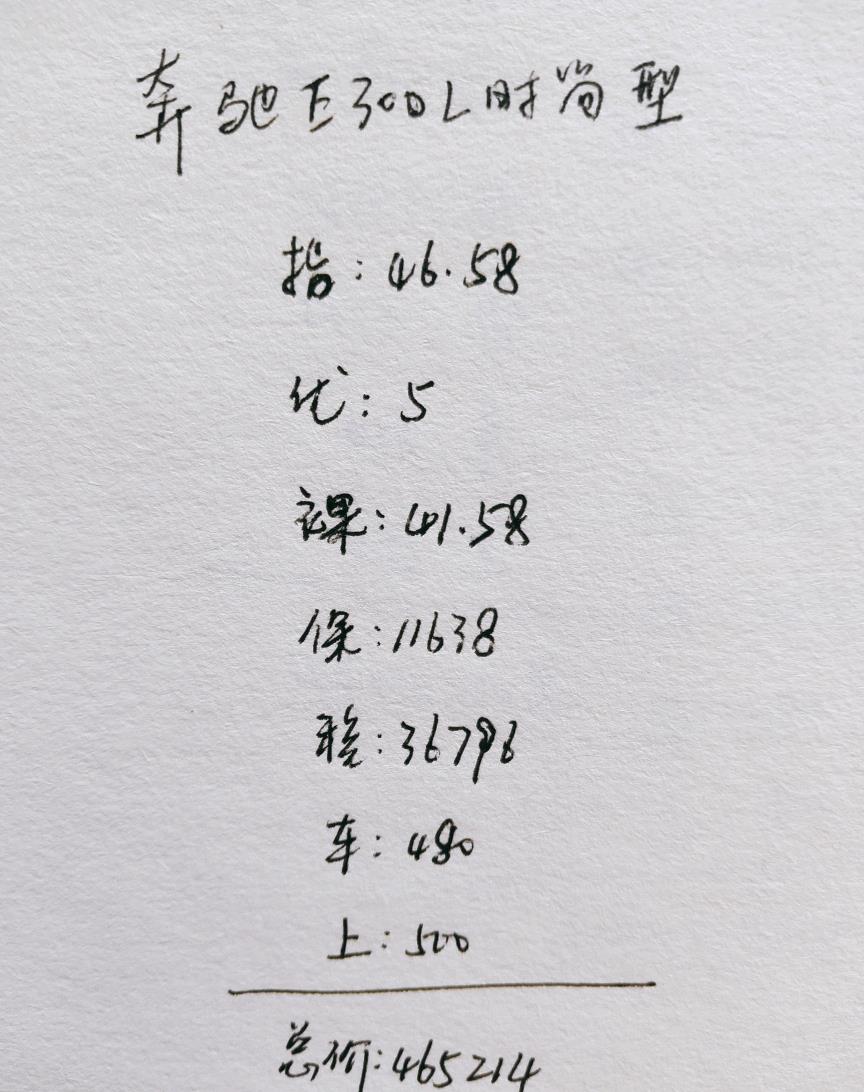 奔驰E300L时尚型
指:46.58
优:5
裸:41.58
保:11638
税:36796
车:480
上:500
总价:465214